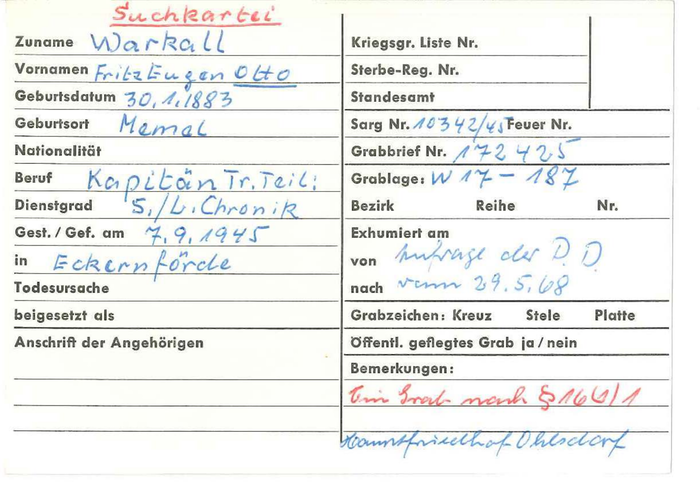 Suchkartei
Zuname Warkall
Vornamen Fritz Eugen Otto
Geburtsdatum 30.1.1883
Geburtsort Memel
Nationalität
Beruf Kapitän Tr. Teil:
Dienstgrad S./L. Chronik
Gest. / Gef. am 7.9.1945
in Eckernförde
Todesursache
beigesetzt als
Anschrift der Angehörigen
Kriegsgr. Liste Nr.
Sterbe-Reg. Nr.
Standesamt
Sarg Nr. 10342/45 Feuer Nr.
Grabbrief Nr. 172425
Grablage: W 17 - 187
Bezirk Reihe Nr.
Exhumiert am
von Anfrage der D.D.
nach vom 29.5.68
Grabzeichen: Kreuz Stele Platte
Öffentl. gepflegtes Grab ja / nein
Bemerkungen:
Ein Grab nach § 16(1)/1
Hauptfriedhof Ohlsdorf